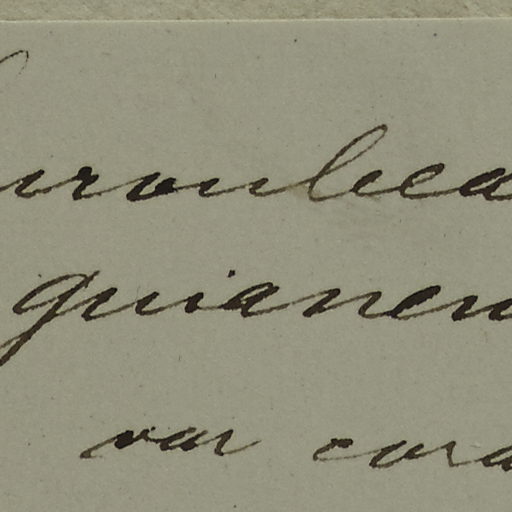 uroubea
guianen
var cora